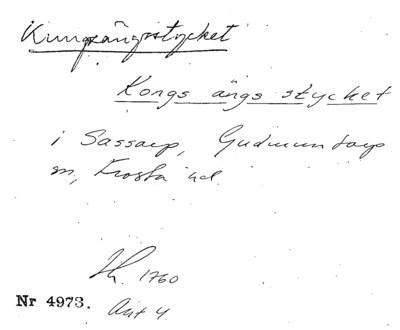 Kungsängsstycket
Kongs ängs stycket
i Sassarp, Gudmuntorps
sn, Frosta hd.
Lh. 1760
Nr 4973.
Akt 4